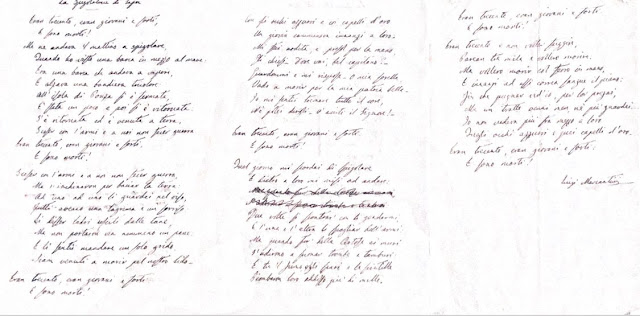 La Spigolatrice di Sapri
Eran trecento, eran giovani e forti,
E sono morti!
Me ne andava il mattino a spigolare,
Quando ho visto una barca in mezzo al mare:
Era una barca che andava a vapore,
E alzava una bandiera tricolore.
All'isola di Ponza si è fermata,
È stata un poco e poi si è ritornata;
S'è ritornata ed è venuta a terra.
Sceser con l'armi e a noi non fecer guerra.
Eran trecento, eran giovani e forti.
E sono morti!
Sceser con l'armi e a noi non fecer guerra,
Ma s'inchinaron per baciar la terra.
Ad uno ad uno li guardai nel viso,
Tutti aveano una lagrima e un sorriso
Li disser ladri usciti dalle tane,
Ma non portaron via nemmeno un pane;
E li sentii mandare un solo grido:
Siam venuti a morir pel nostro lido.
Eran trecento, eran giovani e forti.
E sono morti!
Con gli occhi azzurri e coi capelli d'oro
Un giovin camminava innanzi a loro:
Mi feci ardita, e, presol per la mano,
Gli chiesi: Dove vai, bel capitano?
Guardommi e mi rispose: O mia sorella
Vado a morir per la mia patria bella.
Io mi sentii tremare tutto il core,
Nè potei dirgli: V'aiuti il Signore!
Eran trecento, eran giovani e forti.
E sono morti!
Quel giorno mi scordai di spigolare
E dietro a loro mi misi ad andare.
Due volte si scontrar con li gendarmi
E l'una e l'altra li spogliar dell'armi.
Ma quando fur della Certosa ai muri
S'udirono a suonar trombe e tamburi;
E tra il fumo e gli spari e le scintille
Piombaron loro addosso più di mille.
Eran trecento, eran giovani e forti
E sono morti!
Eran trecento e non voller fuggire,
Parean tre mila e vollero morire,
Ma vollero morir col ferro in mano,
E innanzi ad essi correa sangue il piano:
Fin che pugnar vid'io, per lor pregai,
Ma un tratto venni men, nè più guardai.
Io non vedeva più fra mezzo a loro
Quegli occhi azzurri e quei capelli d'oro.
Eran trecento, eran giovani e forti
E sono morti!
Luigi Mercantini